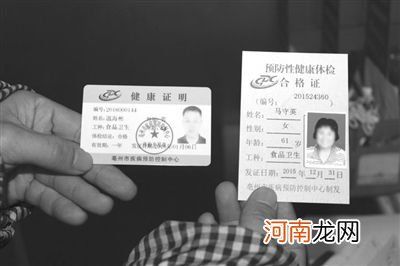 健康证明
编号:2016000144
姓名:温海州
工种:食品卫生
体检结论:合格
有效期:一年
01月06日
亳州市疾病预防控制中心
预防性健康体检
合格证
(编号: 201524360
姓名 马守英
性别 女
年龄 61岁
工种 食品卫生
发证日期 2015年12月31日
亳州市疾病预防控制中心制发
河南龙网